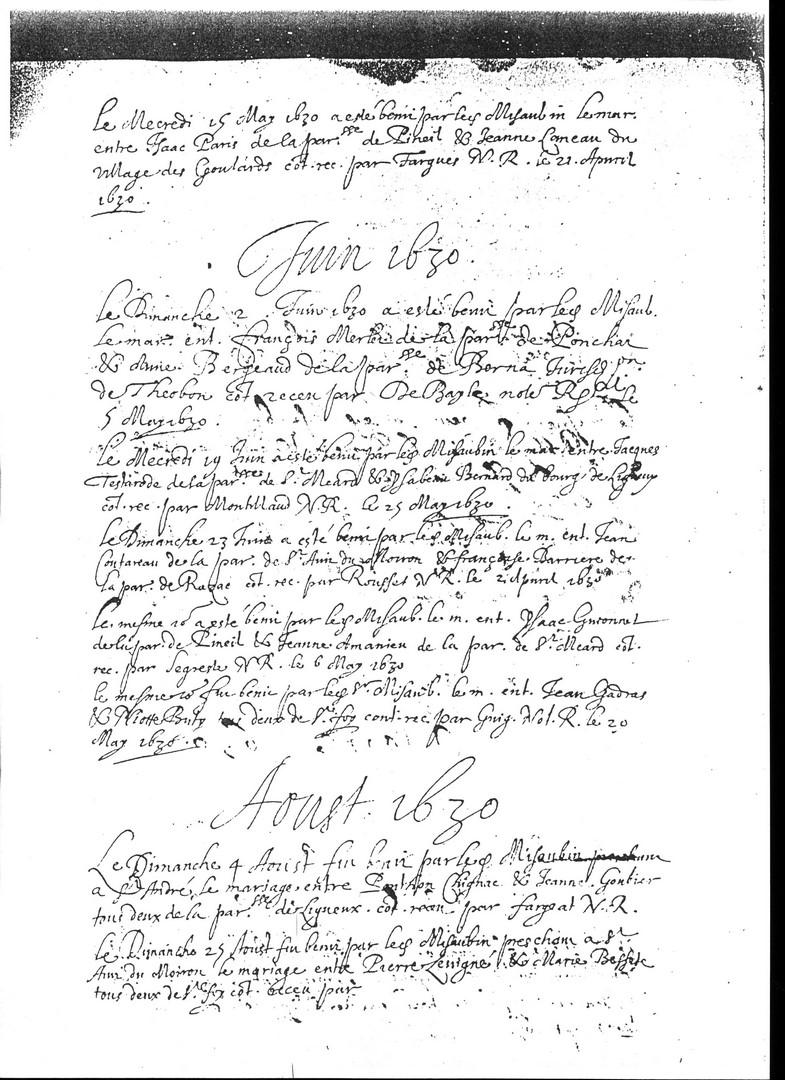 le Mecredi 15 May 1630 a esté beni par le Sr Misaubin le mar.
entre Isaac Paris de la par.sse de Pineil & Jeanne Comeau du
village des Goulards cōt. rec. par Fargues N. R. le 21. Apvril
1630.
Juin 1630.
le Dimanche 2 Juin 1630 a esté beni par le Sr Misaub.
le mar. ent. françois Merle de la par.sse de Ponchat
& Anne Bergeaud de la par.sse de Borna Jurisd.on
de Theobon cōt. receu par De Bayle note R le
5 May 1630.
le Mecredi 19 Juin a esté beni par le Sr Misaubin le mar. entre Jacques
Testarode de la par.sse de St Meard & Ysabeau Bernard du bourg de Ligueux
cōt. rec. par Montillaud N. R. le 25 May 1630.
le Dimanche 23 Juin a esté beni par le Sr Misaub. le m. ent. Jean
Coutareau de la par. de St Avit du Moiron & françoise Barriere de
la par. de Razac cōt. rec. par Rousset N. R. le 2 Apvril 1630
le mesme io. a esté beni par le Sr Misaub. le m. ent. Ysaac Guionnet
de la par. de Pineil & Jeanne Amanieu de la par. de St Meard cōt.
rec. par Segreste N. R. le 6 May 1630
le mesme io. fu beni par le Sr Misaub. le m. ent. Jean Gadras
& Buty tous deux de Ste foy cont. rec. par Guig. Not. R. le 20
May 1630.
Aoust 1630
Le Dimanche 4 Aoust fu beni par le Sr Misaubin
a St André le mariage entre Chignac & Jeanne Goubier
tous deux de la par.sse de Ligueux cōt. receu par fargeat N. R.
le Dimanche 25 Aoust fu beni par le Sr Misaubin preschant a St
Avit du Moiron le mariage entre Pierre Levigne & Marie Bessete
tous deux de Ste foy cōt. receu par